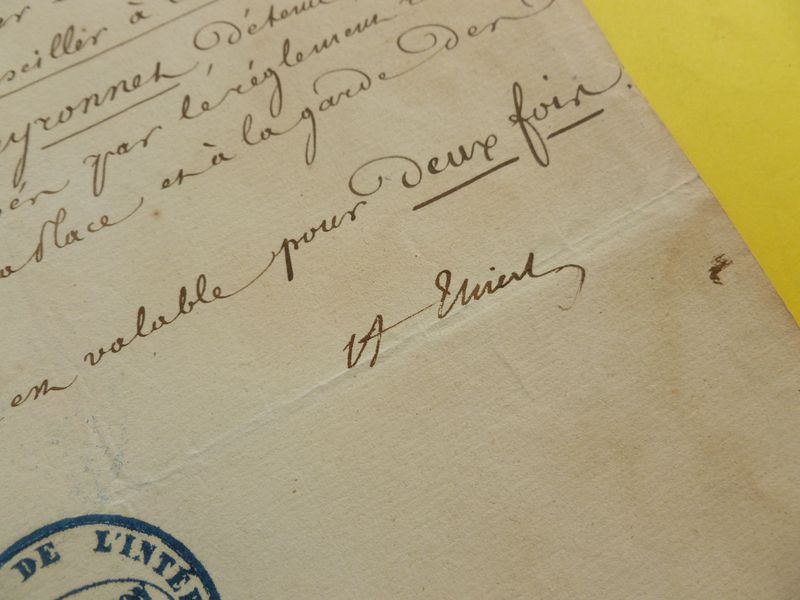 seiller à
eyronnet, détenu
par le réglement
la Place et à la garde des
est valable pour deux fois.
A Thiers
DE L'INTÉR